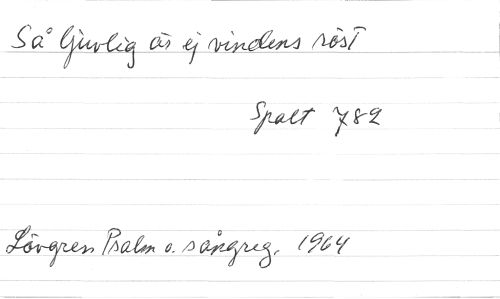 Så ljuvlig är ej vindens röst
Spalt 782
Lövgren Psalm o. sångreg. 1964